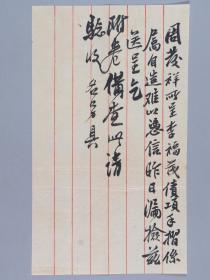 周茂祥所呈李福茂債項手摺係
屬自造難以憑信昨日漏檢茲
送呈乞
附卷備查此請
驗收 名另具